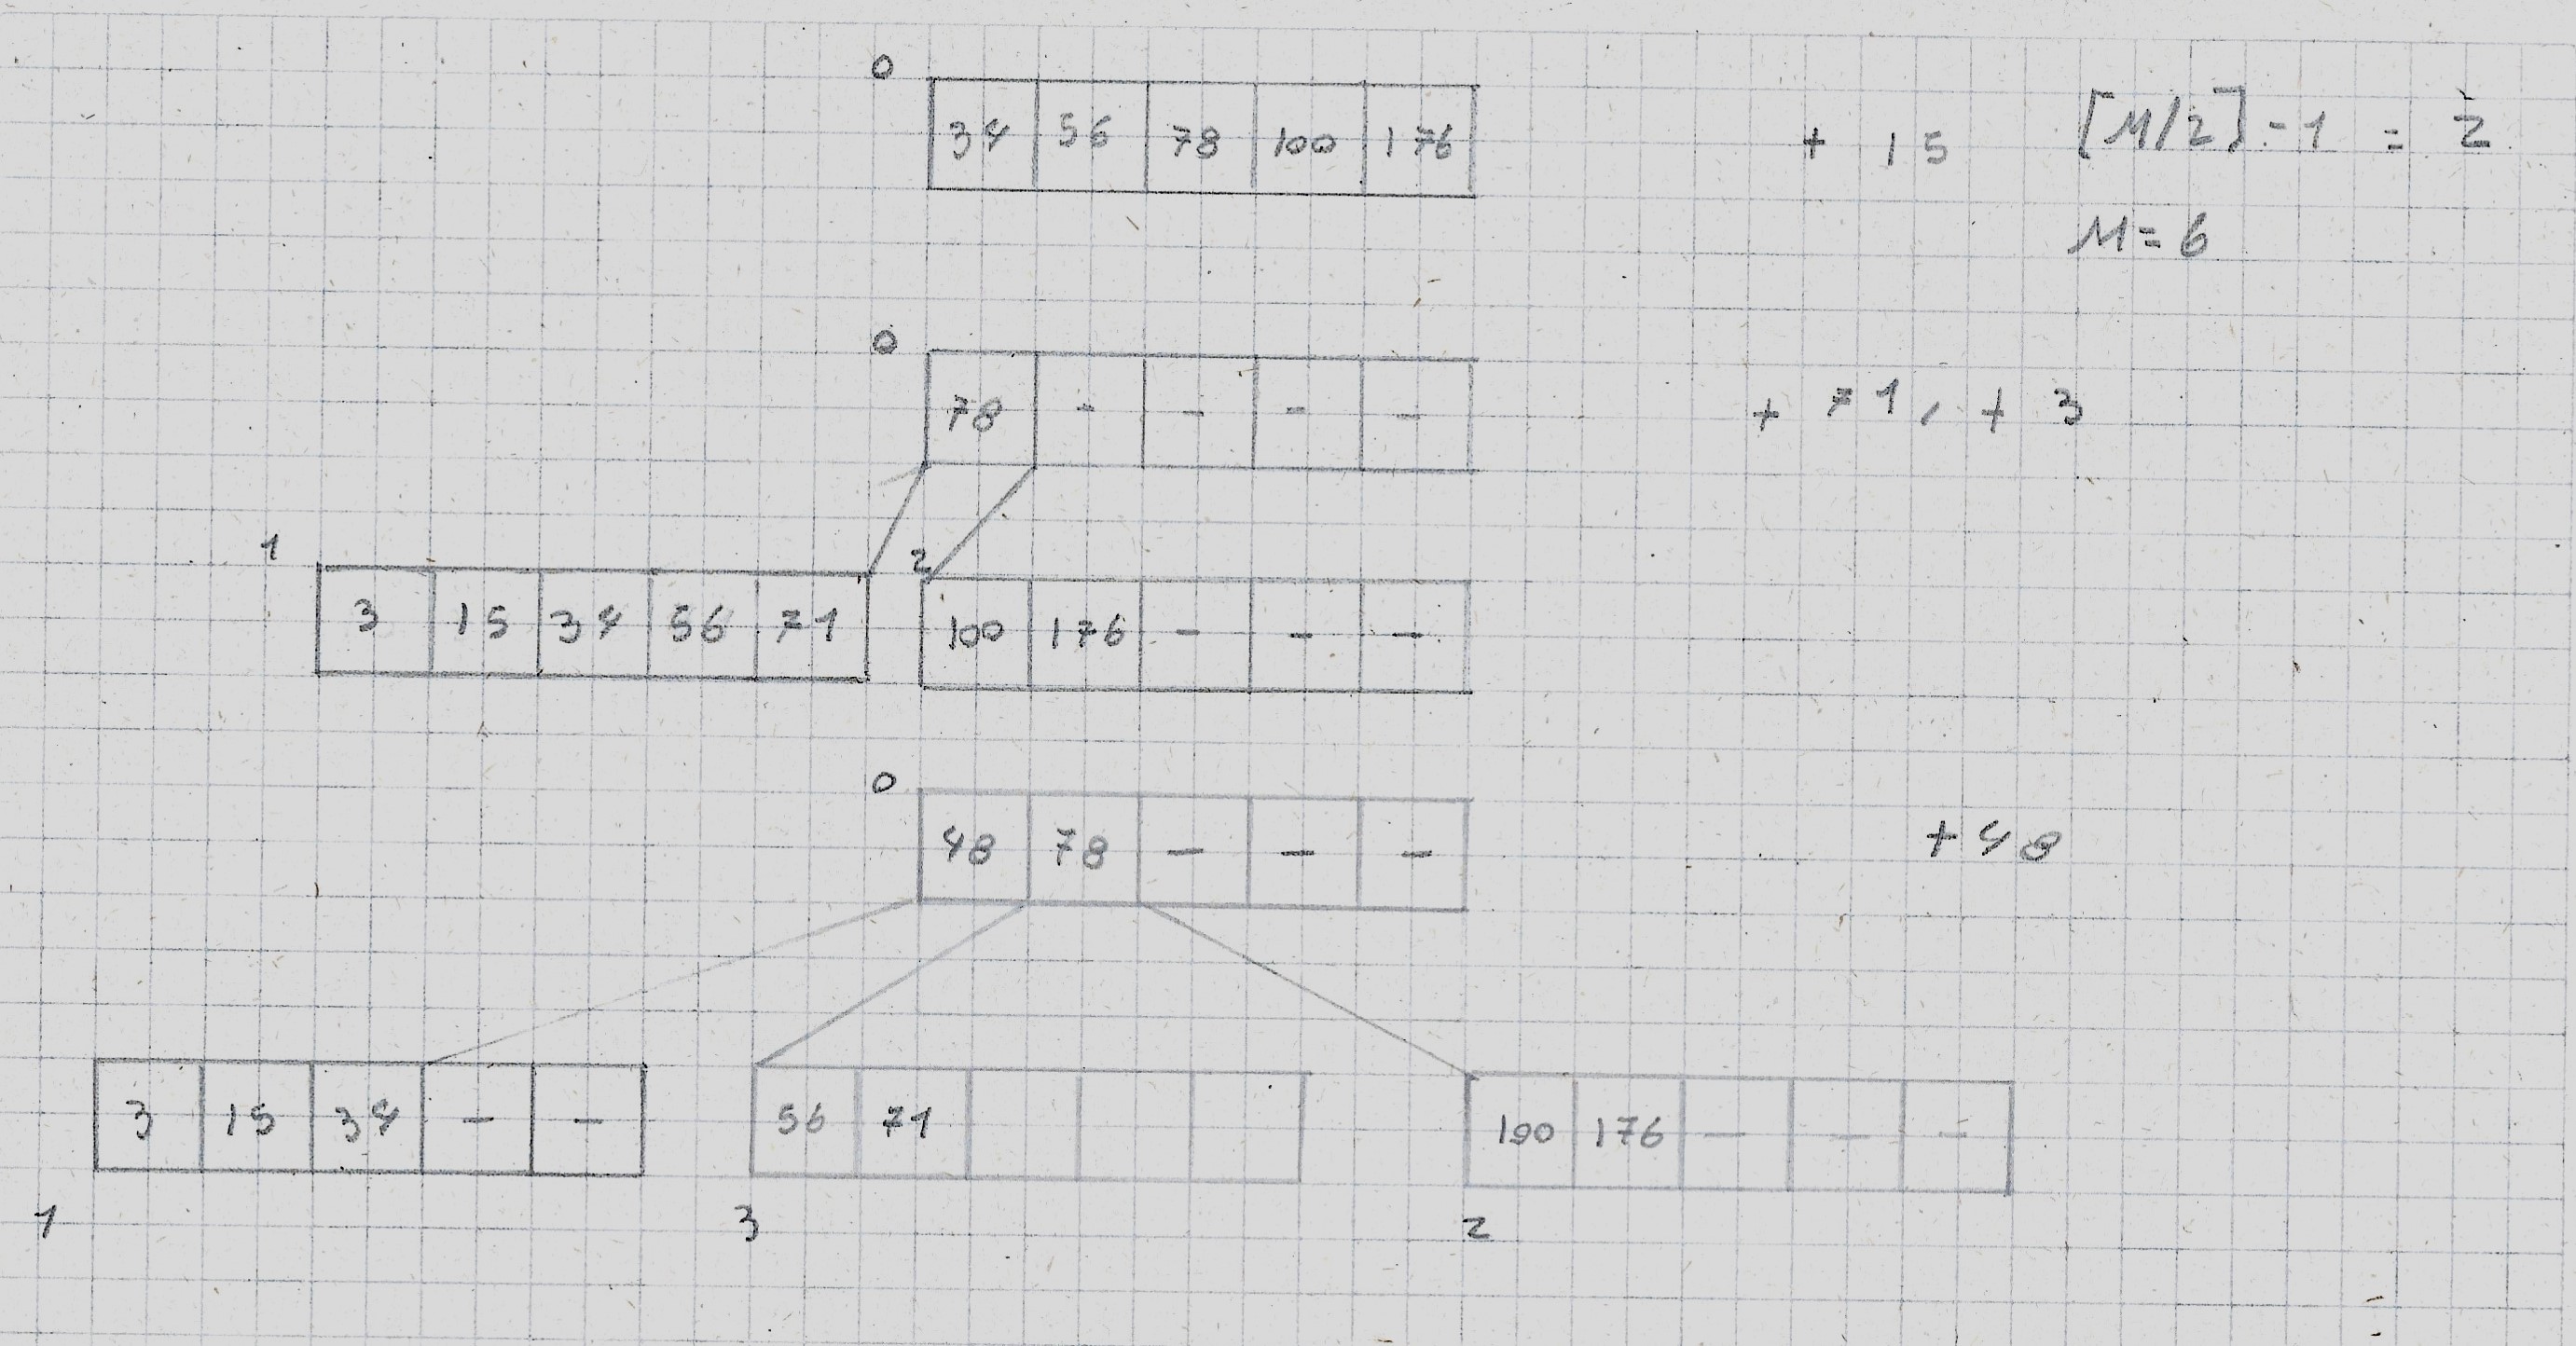 0
34 56 78 100 176 + 15 [M/2] - 1 = 2
M = 6
0
78 - - - - + 71, + 3
1 2
3 15 34 56 71 100 176 - - -
0
48 78 - - - + 48
3 15 34 - - 56 71 100 176 - - -
1 3 2